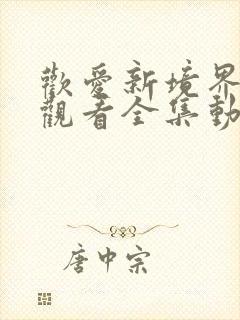 歡愛新境界
觀看全集動
唐中宗